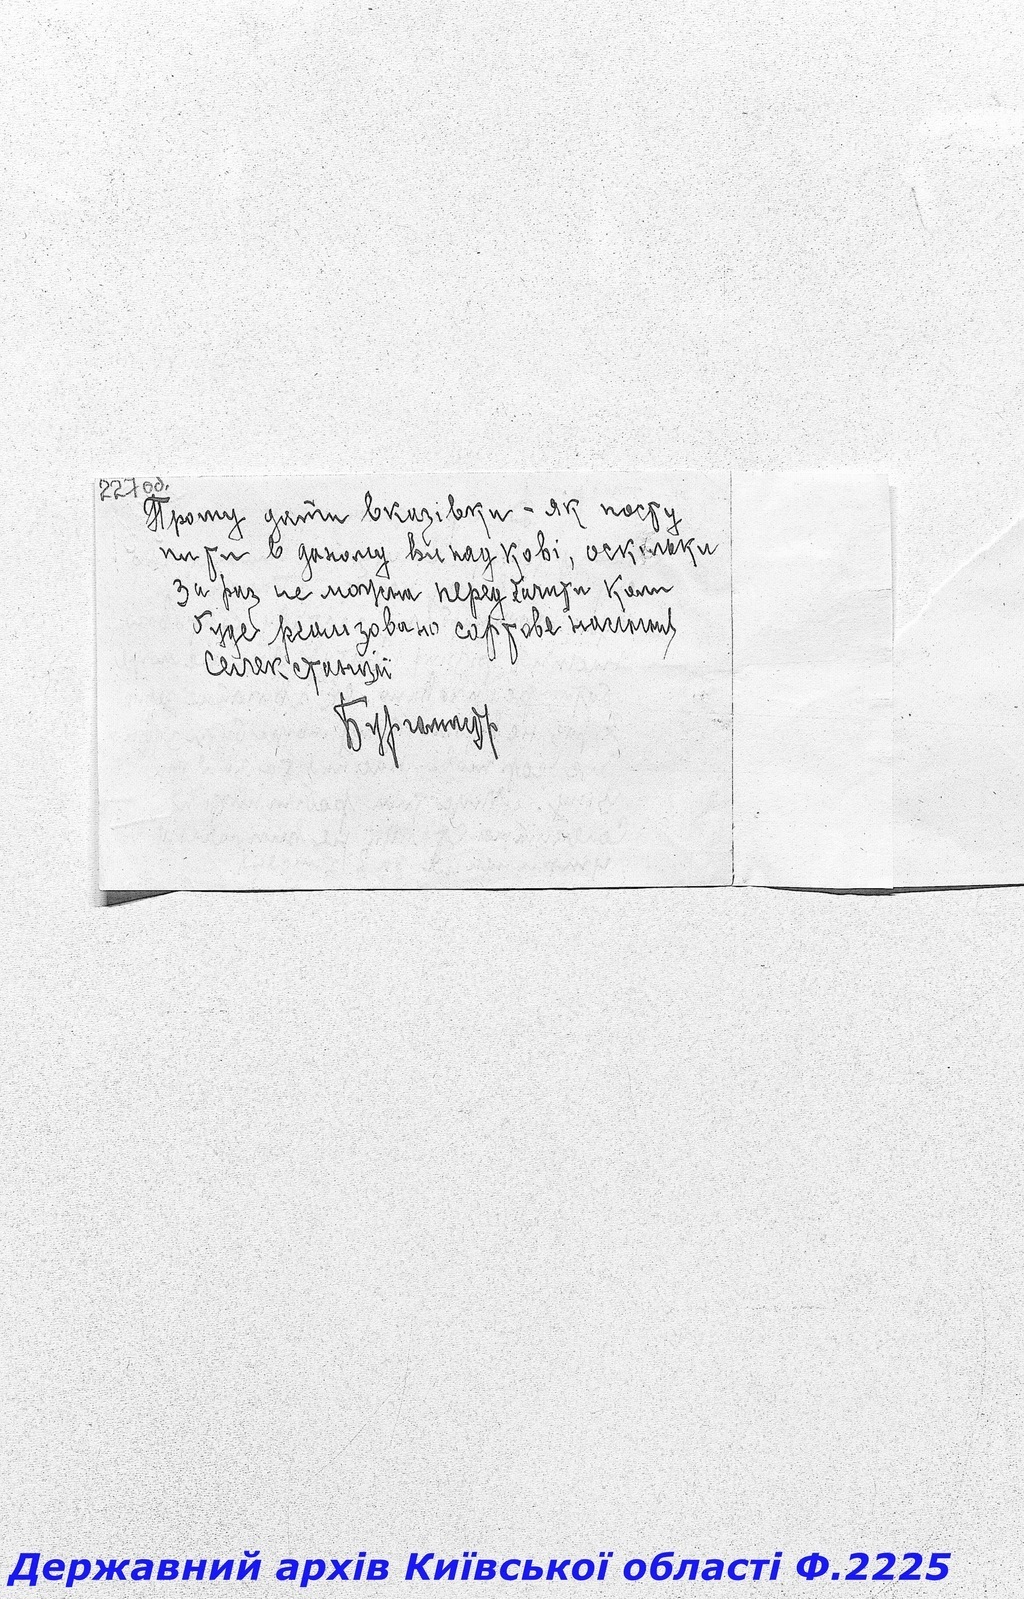 227 об.
Прошу дати вказівки - як посту
пити в даному випадкові, оскільки
за раз не можна передбачити коли
буде реалізовано сортове насіння
селекстанції
Бургомістр
Державний архів Київської області Ф.2225